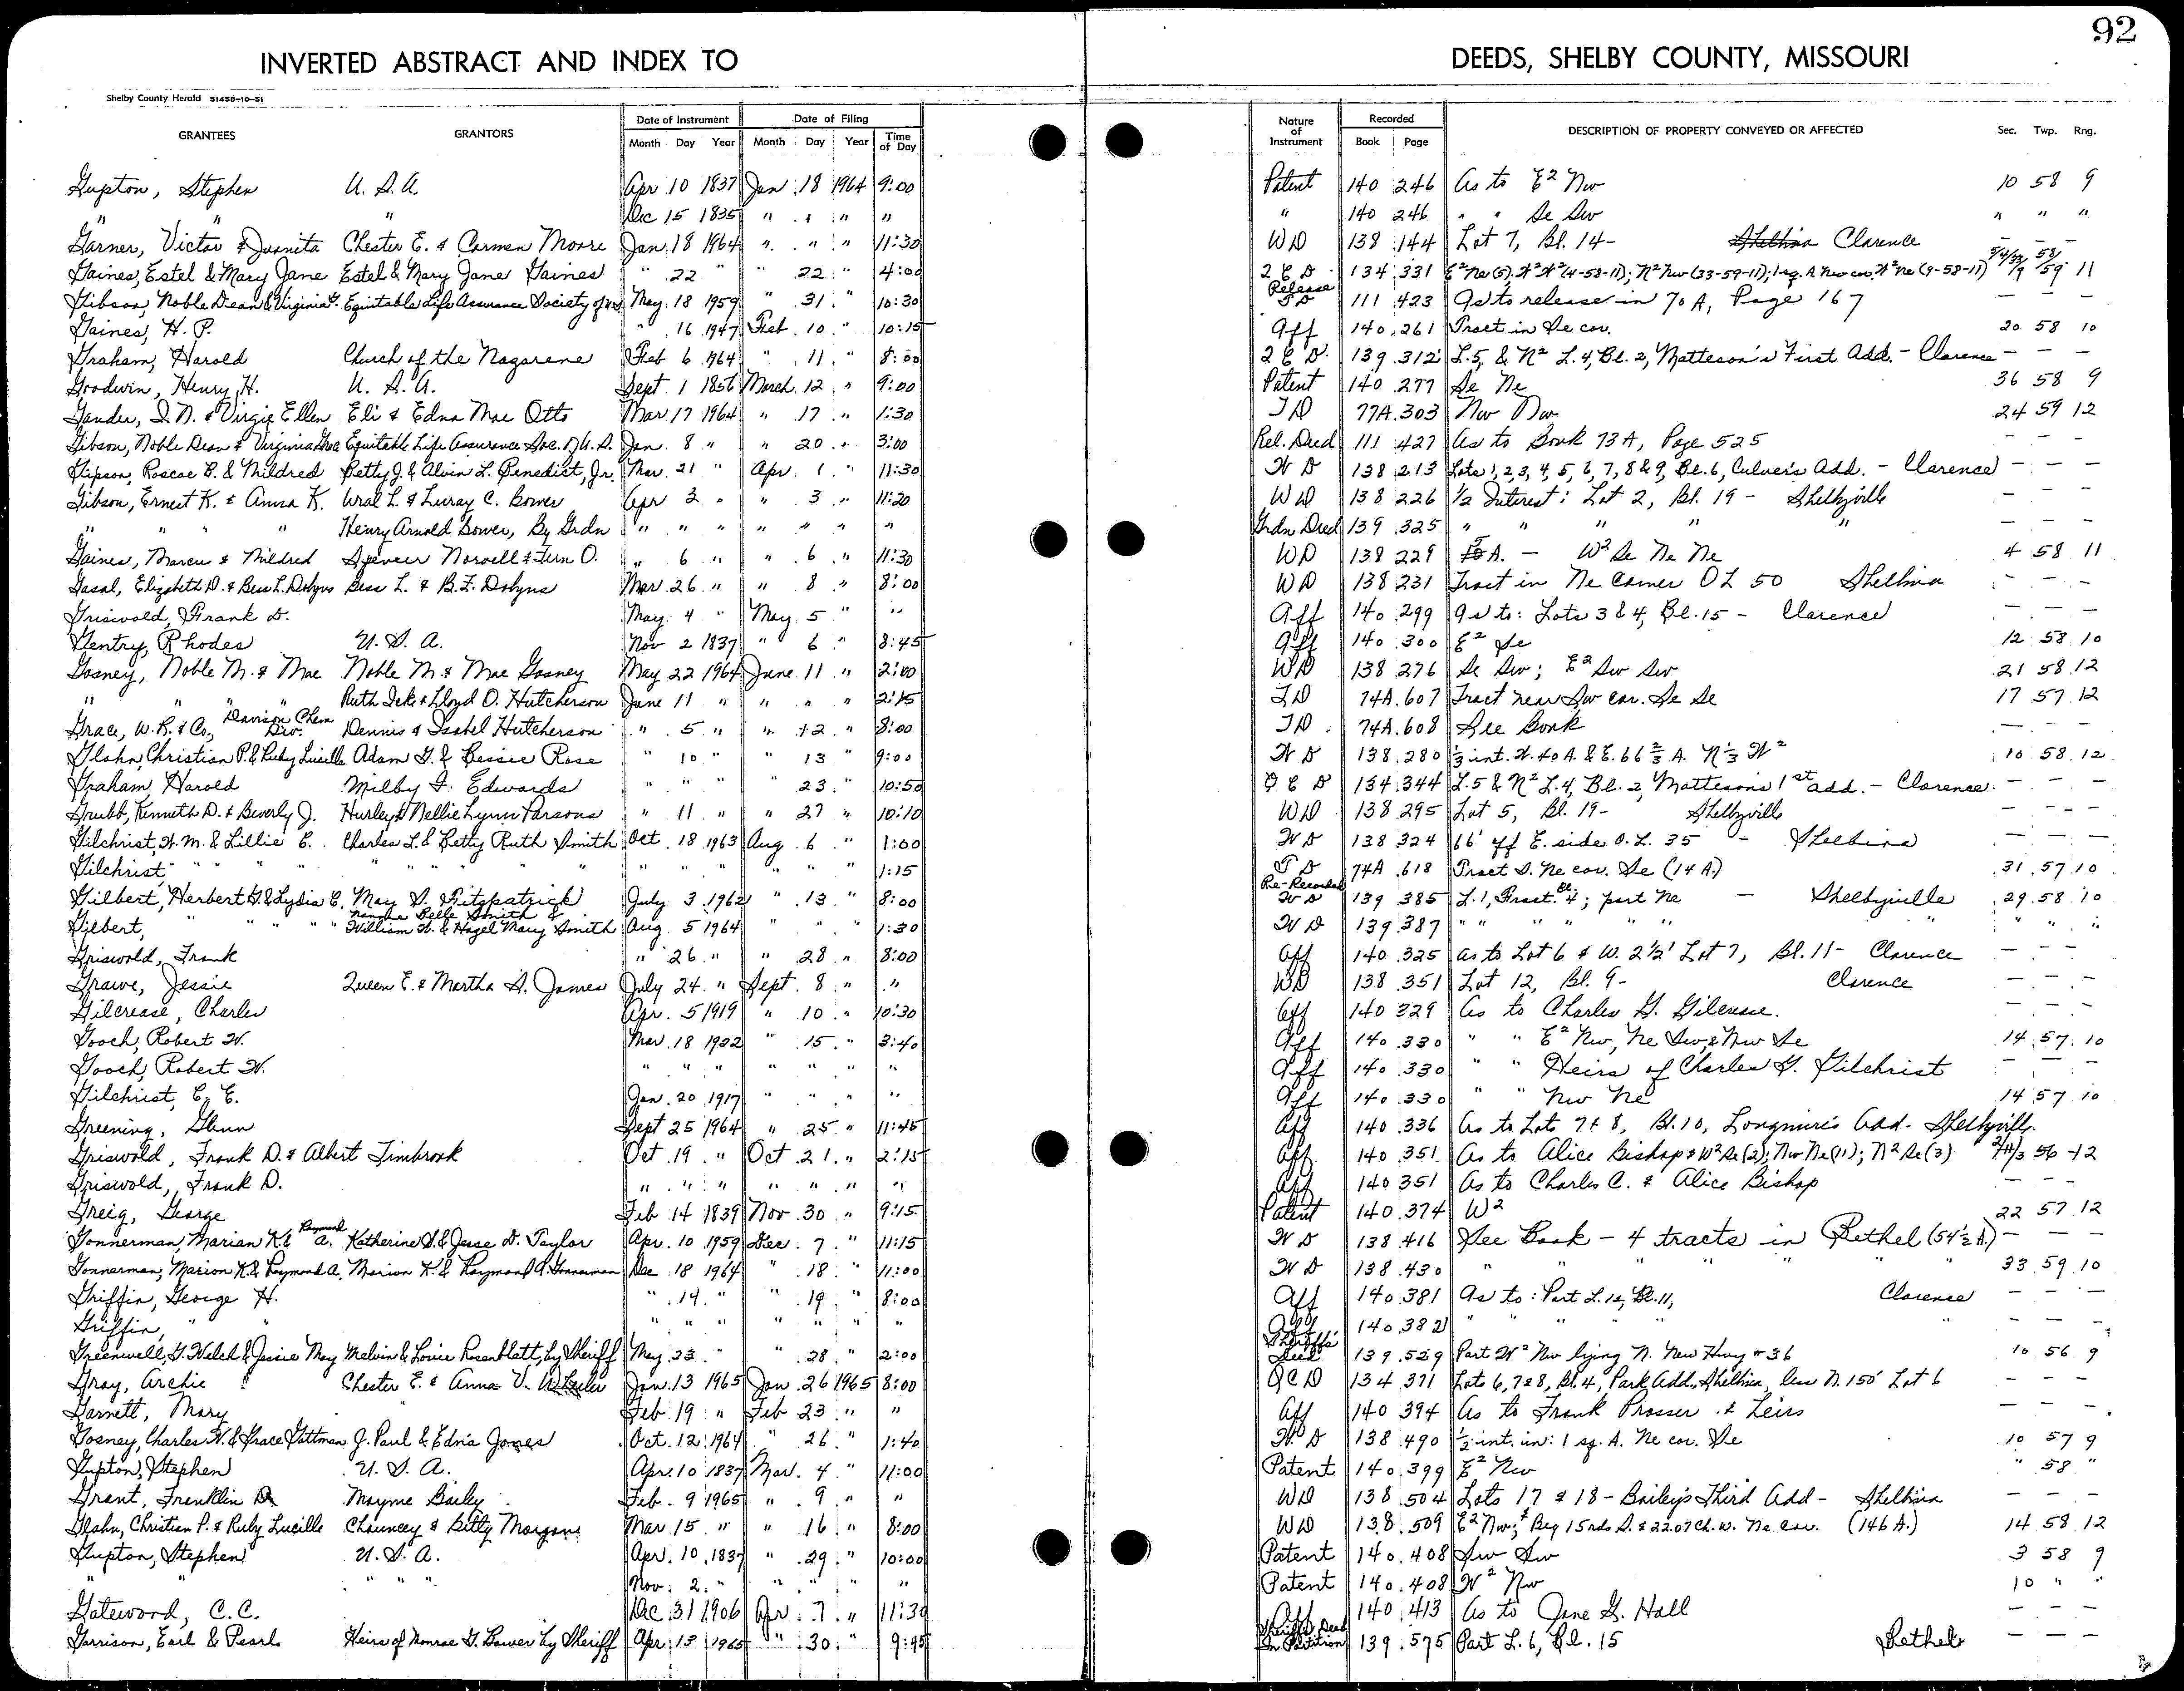 92
INVERTED ABSTRACT AND INDEX TO DEEDS, SHELBY COUNTY, MISSOURI
Shelby County Herald 51458-10-51
Date of Instrument Date of Filing Nature of Instrument Recorded
GRANTEES GRANTORS Month Day Year Month Day Year Time of Day Book Page DESCRIPTION OF PROPERTY CONVEYED OR AFFECTED Sec. Twp. Rng.
Gupton, Stephen U. S. A. Apr 10 1837 Jan 18 1964 9:00 Patent 140 246 As to E² Nw 10 58 9
" " Dec 15 1835 " " " " " 140 246 " " Se Sw " " "
Garner, Victor & Juanita Chester E. & Carmen Moore Jan. 18 1964 " " " 11:30 WD 138 144 Lot 7, Bl. 14- Clarence — — —
Gaines, Estel & Mary Jane Estel & Mary Jane Gaines " 22 " " 22 " 4:00 Q C D 134 331 E² Ne (5); W² W² (4-58-11); N² Nw (33-59-11); 1 sq. A. Nw cor. W² Ne (9-58-11) 5/4/33/9 58/59 11
Gibson, Noble Dean & Virginia Equitable Life Assurance Society of May 18 1959 " 31 " 10:30 Release TD 111 423 As to release in 70 A, Page 167 — — —
Gaines, H. P. " 16 1947 Feb. 10 " 10:15 Aff 140 261 Tract in Se cor. 20 58 10
Graham, Harold Church of the Nazarene Feb 6 1964 " 11 " 8:00 Q C D 139 312 L. 5, & N² L. 4, Bl. 2, Matteson's First Add. - Clarence — — —
Goodwin, Henry H. U. S. A. Sept 1 1856 March 12 " 9:00 Patent 140 277 Se Ne 36 58 9
Gander, I. N. & Virgie Ellen Eli & Edna Mae Otto Mar 17 1964 " 17 " 1:30 TD 77A 303 Nw Nw 24 59 12
Gibson, Noble Dean & Virginia Equitable Life Assurance Soc. of U. S. Jan. 8 " " 20 " 3:00 Rel. Deed 111 427 As to Book 73 A, Page 525 — — —
Gipson, Roscoe B. & Mildred Betty J. & Alvin L. Benedict, Jr. Mar 21 " Apr. 1 " 11:30 W D 138 213 Lots 1, 2, 3, 4, 5, 6, 7, 8 & 9, Bl. 6, Culver's Add. - Clarence — — —
Gibson, Ernest K. & Anna K. Wral L. & Luray C. Bower Apr 2 " " 3 " 11:20 WD 138 226 1/2 Interest: Lot 2, Bl. 19 - Shelbyville — — —
" " " " Henry Arnold Bower, By Grdn " " " " " " " Grdn Deed 139 325 " " " " " — — —
Gaines, Marcus & Mildred Spencer Norvell & Fern O. " 6 " " 6 " 11:30 WD 138 229 5 A. — W² Se Ne Ne 4 58 11
Gasal, Elizabeth D. & Bess L. Dobyns Bess L. & B. F. Dobyns Mar 26 " " 8 " 8:00 WD 138 231 Tract in Ne Corner O L 50 Shelbina — — —
Griswold, Frank D. May 4 " May 5 " " Aff 140 299 As to: Lots 3 & 4, Bl. 15 - Clarence — — —
Gentry, Rhodes U. S. A. Nov 2 1837 " 6 " 8:45 Aff 140 300 E² Se 12 58 10
Gosney, Noble M. & Mae Noble M. & Mae Gosney May 22 1964 June 11 " 2:00 WD 138 276 Se Sw; E² Sw Sw 21 58 12
" " " Ruth Icke & Lloyd O. Hutcherson June 11 " " " " 2:15 TD 74A 607 Tract near Sw cor. Se Se 17 57 12
Grace, W. R. & Co., Davison Chem Div. Dennis & Isabel Hutcherson " 5 " " 12 " 8:00 TD 74A 608 See Book — — —
Glahn, Christian P. & Ruby Lucille Adam G. & Bessie Rose " 10 " " 13 " 9:00 W D 138 280 1/3 int. W. 40 A. & E. 66 2/3 A. N 1/3 W² 10 58 12
Graham, Harold Milby F. Edwards " " " " 23 " 10:50 Q C D 134 344 L. 5 & N² L. 4, Bl. 2, Matteson's 1st Add. - Clarence — — —
Grubb, Kenneth D. & Beverly J. Hurley & Nellie Lynn Parsons " 11 " " 27 " 10:10 WD 138 295 Lot 5, Bl. 19 - Shelbyville — — —
Gilchrist, W. M. & Lillie E. Charles L. & Betty Ruth Smith Oct. 18 1963 Aug 6 " 1:00 W D 138 324 66' off E. side O. L. 35 - Shelbina — — —
Gilchrist " " " " " " " " " " 1:15 T D 74A 618 Tract S. Ne cor. Se (14 A.) 31 57 10
Gilbert, Herbert G. & Lydia E. May S. Fitzpatrick July 3 1962 " 13 " 8:00 Re-Recorded W D 139 385 L. 1, Fract. Bl. 4; part Ne — Shelbyville 29 58 10
Gilbert, " " " " Nannie Belle Smith & William W. & Hazel Mary Smith Aug. 5 1964 " " " 1:30 W D 139 387 " " " " " " " " "
Griswold, Frank " 26 " " 28 " 8:00 Aff 140 325 As to Lot 6 & W. 2 1/2' Lot 7, Bl. 11 - Clarence — — —
Grawe, Jessie Queen E. & Martha A. James July 24 " Sept. 8 " " WD 138 351 Lot 12, Bl. 9 - Clarence — — —
Gilcrease, Charles Apr. 5 1919 " 10 " 10:30 Aff 140 329 As to Charles G. Gilcrease. — — —
Gooch, Robert W. Mar. 18 1932 " 15 " 3:40 Aff 140 330 " " E² Nw, Ne Sw, & Nw Se 14 57 10
Gooch, Robert W. " " " " " " " Aff 140 330 " " Heirs of Charles G. Gilchrist — — —
Gilchrist, C. E. Jan. 20 1917 " " " " Aff 140 330 " " Nw Ne 14 57 10
Greening, Glenn Sept 25 1964 " 25 " 11:45 Aff 140 336 As to Lots 7 & 8, Bl. 10, Longmire's Add - Shelbyville. — — —
Griswold, Frank D. & Albert Timbrook Oct. 19 " Oct 21 " 2:15 Aff 140 351 As to Alice Bishop & W² Se (2); Nw Ne (11); N² Se (3) 2/11/3 56 12
Griswold, Frank D. " " " " " " " Aff 140 351 As to Charles C. & Alice Bishop — — —
Greig, George Feb 14 1839 Nov. 30 " 9:15 Patent 140 374 W² 22 57 12
Gonnerman, Marian K. & Raymond A. Katherine S. & Jesse D. Taylor Apr. 10 1959 Dec. 7 " 11:15 W D 138 416 See Book - 4 tracts in Bethel (54 1/2 A.) — — —
Gonnerman, Marion K. & Raymond A. Marion K. & Raymond A. Gonnerman Dec 18 1964 " 18 " 11:00 W D 138 430 " " " " " " 33 59 10
Griffin, George H. " 14 " " 19 " 8:00 Aff 140 381 As to: Part L. 12, Bl. 11, Clarence — — —
Griffin, " " " " " " " " " Aff 140 382 " " " " " " — — —
Greenwell, G. Welch & Jessie May Melvin & Louise Rosenblatt, by Sheriff May 23 " " 28 " 2:00 Sheriff's Deed 139 529 Part W² Nw lying N. New Hwy # 36 10 56 9
Gray, Archie Chester E. & Anna V. Wheeler Jan. 13 1965 Jan. 26 1965 8:00 Q C D 134 371 Lots 6, 7 & 8, Bl. 4, Park Add., Shelbina, less N. 150' Lot 6 — — —
Garnett, Mary Feb. 19 " Feb 23 " " Aff 140 394 As to Frank Prosser & heirs — — —
Gosney, Charles W. & Grace Pittman J. Paul & Edna Jones Oct. 12 1964 " 26 " 1:40 W D 138 490 1/2 int. in: 1 sq. A. Ne cor. Se 10 57 9
Gupton, Stephen U. S. A. Apr. 10 1837 Mar. 4 " 11:00 Patent 140 399 E² Nw " 58 "
Grant, Franklin D. Mayme Bailey Feb. 9 1965 " 9 " " WD 138 504 Lots 17 & 18 - Bailey's Third Add - Shelbina — — —
Glahn, Christian P. & Ruby Lucille Chauncey & Betty Morgan Mar 15 " " 16 " 8:00 WD 138 509 E² Nw; & Beg 15 rds S. & 22.07 Ch. W. Ne cor. (146 A.) 14 58 12
Gupton, Stephen U. S. A. Apr. 10 1837 " 29 " 10:00 Patent 140 408 Sw Sw 3 58 9
" " " " " Nov. 2 " " " " " Patent 140 408 W² Nw 10 " "
Gatewood, C. C. Dec 31 1906 Apr. 7 " 11:30 Aff 140 413 As to Jane G. Hall — — —
Garrison, Earl & Pearl Heirs of Monroe G. Bower by Sheriff Apr 13 1965 " 30 " 9:45 Sheriff's Deed In Partition 139 575 Part L. 6, Bl. 15 Bethel — — —